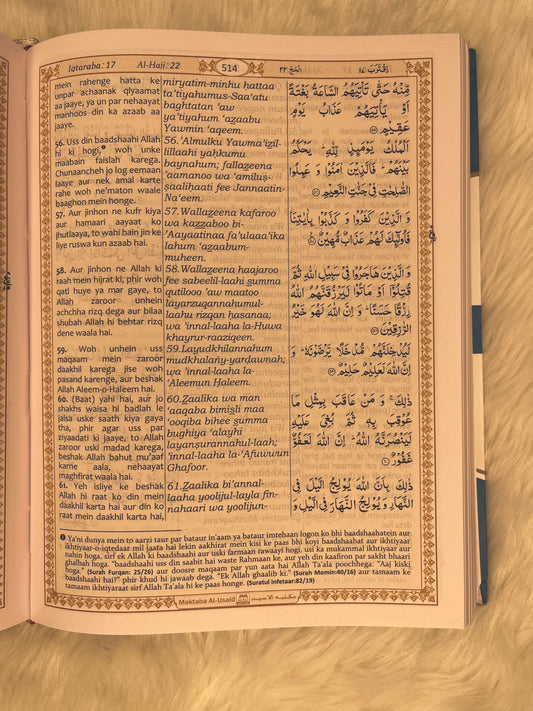 Iqtaraba: 17 Al-Hajj: 22 514 الحج ٢٢ اقترب ١٧
mein rahenge hatta ke
unpar achaanak qiyaamat
aa jaaye, ya un par nehaayat
manhoos din ka azaab aa
jaaye.
56. Uss din baadshaahi Allah
hi ki hogi,❶ woh unke
maabain faislah karega.
Chunaancheh jo log eemaan
laaye aur nek amal karte
rahe woh ne'maton waale
baaghon mein honge.
57. Aur jinhon ne kufr kiya
aur hamaari aayaat ko
jhutlaaya, to wahi hain jin ke
liye ruswa kun azaab hai.
58. Aur jinhon ne Allah ki
raah mein hijrat ki, phir woh
qatl huye ya mar gaye, to
Allah zaroor unhein
achchha rizq dega aur bilaa
shubah Allah hi behtar rizq
dene waala hai.
59. Woh unhein uss
maqaam mein zaroor
daakhil karega jise woh
pasand karenge, aur beshak
Allah Aleem-o-Haleem hai.
60. (Baat) yahi hai, aur jo
shakhs waisa hi badlah le
jaisa uske saath kiya gaya
tha, phir agar uss par
ziyaadati ki jaaye, to Allah
zaroor uski madad karega,
beshak Allah bahut mu'aaf
karne aala, nehaayat
maghfirat waala hai.
61. Yeh isliye ke beshak
Allah hi raat ko din mein
daakhil karta hai aur din ko
raat mein daakhil karta hai,
miryatim-minhu hattaa
ta'tiyahumus-Saa'atu
baghtatan 'aw
ya'tiyahum 'azaabu
Yawmin 'aqeem.
56. 'Almulku Yawma'izil-
lillaahi yaḥkumu
baynahum; fallazeena
'aamanoo wa 'amiluṣ-
ṣaaliḥaati fee Jannaatin-
Na'eem.
57. Wallazeena kafaroo
wa kazzaboo bi-
'Aayaatinaa fa'ulaaa'ika
lahum 'azaabum-
muheen.
58. Wallazeena haajaroo
fee sabeelil-laahi summa
qutilooo 'aw maatoo
layarzuqannahumul-
laahu rizqan ḥasanaa;
wa 'innal-laaha la-Huwa
khayrur-raaziqeen.
59. Layudkhilannahum
mudkhalany-yardawnah;
wa 'innal-laaha la-
'Aleemun Ḥaleem.
60. Zaalika wa man
'aaqaba bimisli maa
'ooqiba bihee summa
bughiya 'alayhi
layansurannahul-laah;
'innal-laaha la-'Afuwwun
Ghafoor.
61. Zaalika bi'annal-
laaha yoolijul-layla fin-
nahaari wa yoolijun-
مِّنْهُ حَتّٰى تَاْتِيَهُمُ السَّاعَةُ بَغْتَةً
اَوْ يَاْتِيَهُمْ عَذَابُ يَوْمٍ
عَقِيْمٍ ۝٥٥
اَلْمُلْكُ يَوْمَىِٕذٍ لِّلّٰهِ ؕ يَحْكُمُ
بَيْنَهُمْ ؕ فَالَّذِيْنَ اٰمَنُوْا وَ عَمِلُوا
الصّٰلِحٰتِ فِيْ جَنّٰتِ النَّعِيْمِ ۝٥٦
وَ الَّذِيْنَ كَفَرُوْا وَ كَذَّبُوْا بِاٰيٰتِنَا
فَاُولٰٓىِٕكَ لَهُمْ عَذَابٌ مُّهِيْنٌ ۝٥٧
وَ الَّذِيْنَ هَاجَرُوْا فِيْ سَبِيْلِ اللّٰهِ ثُمَّ
قُتِلُوْۤا اَوْ مَاتُوْا لَيَرْزُقَنَّهُمُ اللّٰهُ
رِزْقًا حَسَنًا ؕ وَ اِنَّ اللّٰهَ لَهُوَ خَيْرُ
الرّٰزِقِيْنَ ۝٥٨
لَيُدْخِلَنَّهُمْ مُّدْخَلًا يَّرْضَوْنَهٗ ؕ وَ
اِنَّ اللّٰهَ لَعَلِيْمٌ حَلِيْمٌ ۝٥٩
ذٰلِكَ ۚ وَ مَنْ عَاقَبَ بِمِثْلِ مَا
عُوْقِبَ بِهٖ ثُمَّ بُغِيَ عَلَيْهِ
لَيَنْصُرَنَّهُ اللّٰهُ ؕ اِنَّ اللّٰهَ لَعَفُوٌّ
غَفُوْرٌ ۝٦٠
ذٰلِكَ بِاَنَّ اللّٰهَ يُوْلِجُ الَّيْلَ فِي
النَّهَارِ وَ يُوْلِجُ النَّهَارَ فِي الَّيْلِ وَ
❶ Ya'ni dunya mein to aarzi taur par bataur in'aam ya bataur imtehaan logon ko bhi baadshaahatein aur
ikhtiyaar-o-iqtedaar mil jaata hai lekin aakhirat mein kisi ke paas bhi koyi baadshaahat aur ikhtiyaar
nahin hoga, sirf ek Allah ki baadshaahi aur uski farmaan rawaayi hogi, usi ka mukammal ikhtiyaar aur
ghalbah hoga. "baadshaahi uss din saabit hai waste Rahmaan ke, aur yeh din kaafiron par sakht bhaari
hoga." (Surah Furqan: 25/26) aur doosre maqaam par yun aata hai Allah Ta'ala poochhega: "Aaj kiski
baadshaahi hai?" phir khud hi jawaab dega. "Ek Allah ghaalib ki." (Surah Momin:40/16) aur tamaam ke
tamaam ikhtiyaraat sirf Allah Ta'ala hi ke paas honge. (Suratul Infetaar:82/19)
Maktaba Al-Usaid مكتبه الاسيد